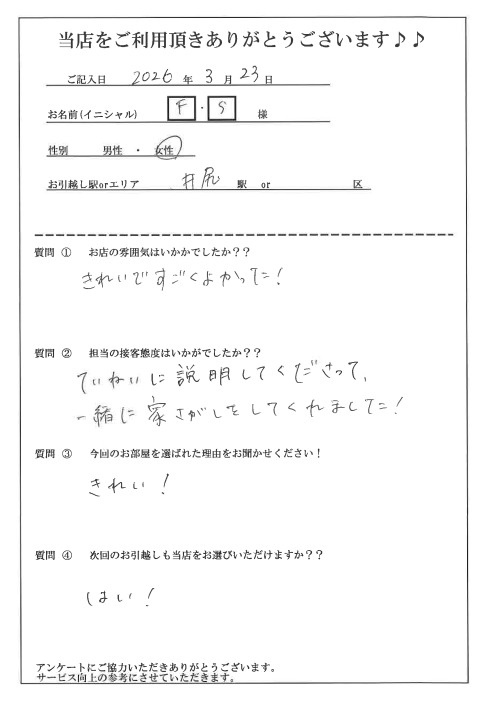 当店をご利用頂きありがとうございます♪♪
ご記入日 2026 年 3 月 23 日
お名前(イニシャル) F ・ S 様
性別 男性 ・ 女性
お引越し駅orエリア 井尻 駅 or 区
質問 ① お店の雰囲気はいかかでしたか？？
きれいですごくよかった！
質問 ② 担当の接客態度はいかがでしたか？？
ていねいに説明してくださって、
一緒に家さがしをしてくれました！
質問 ③ 今回のお部屋を選ばれた理由をお聞かせください！
きれい！
質問 ④ 次回のお引越しも当店をお選びいただけますか？？
はい！
アンケートにご協力いただきありがとうございます。
サービス向上の参考にさせていただきます。